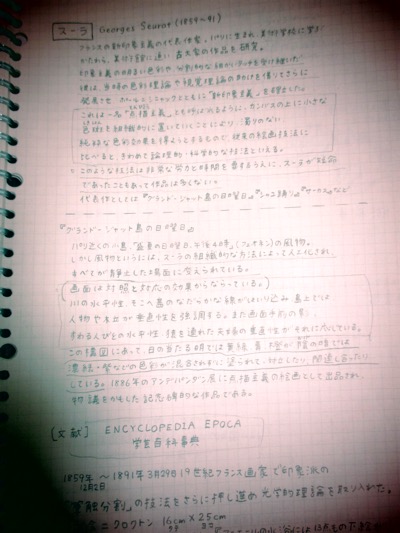 スーラ Georges Seurat (1859〜91)
フランスの新印象主義の代表作家。パリに生まれ、美術学校に学び
ながら、美術館に通い、古大家の作品を研究。
印象主義の明るい色彩や
彼は、当時の色彩理論や視覚理論の助けを借りてさらに
発展させ、ポール=シャックとともに「新印象主義」を
これは一名「点描主義」とも呼ばれるように、カンバスの上に小さな
色球を組織的に置いていくことにより、濁りのない
純粋な色彩効果を得ようとするもので、従来の絵画技法に
比べると、きわめて論理的・科学的な技法といえる。
このような技法は非常な労力と時間を要するうえに、スーラが短命
であったこともあって作品は多くない。
代表作としては『グランド・ジャット島の日曜日』『シャユ踊り』『サーカス』など
『グランド・ジャット島の日曜日』
パリ近くの小島、の風物。
しかし風物というには、スーラの組織的な方法によって人工化され、
すべてが静止した場面に変えられている。
画面は対照と対応の効果がならなっている。
川の水平性、そこへ島のなだらかな線がはいり込み、島上では
人物や木立が垂直性を強調する。また画面手前の影、
歩わる人びとの水平性、猿を連れた夫婦の垂直性がそれに応している。
この構図にあって、日の当たる明では黄緑、青、橙が陰の暗では
濃緑・紫などの色彩が混合されずに塗られて、対応したり、関連し合ったり
している。1886年のアンデパンダン展に点描主義の絵画として出品され、
物議をかもした記念碑的な作品である。
[文献] ENCYCLOPEDIA EPOCA
学芸百科事典
1859年 〜 1891年3月29日 19世紀フランス画家で印象派の
12月2日
「筆触分割」の技法をさらに押し進め光学的理論を取り入れた。
クロクトン 16cm×25cm